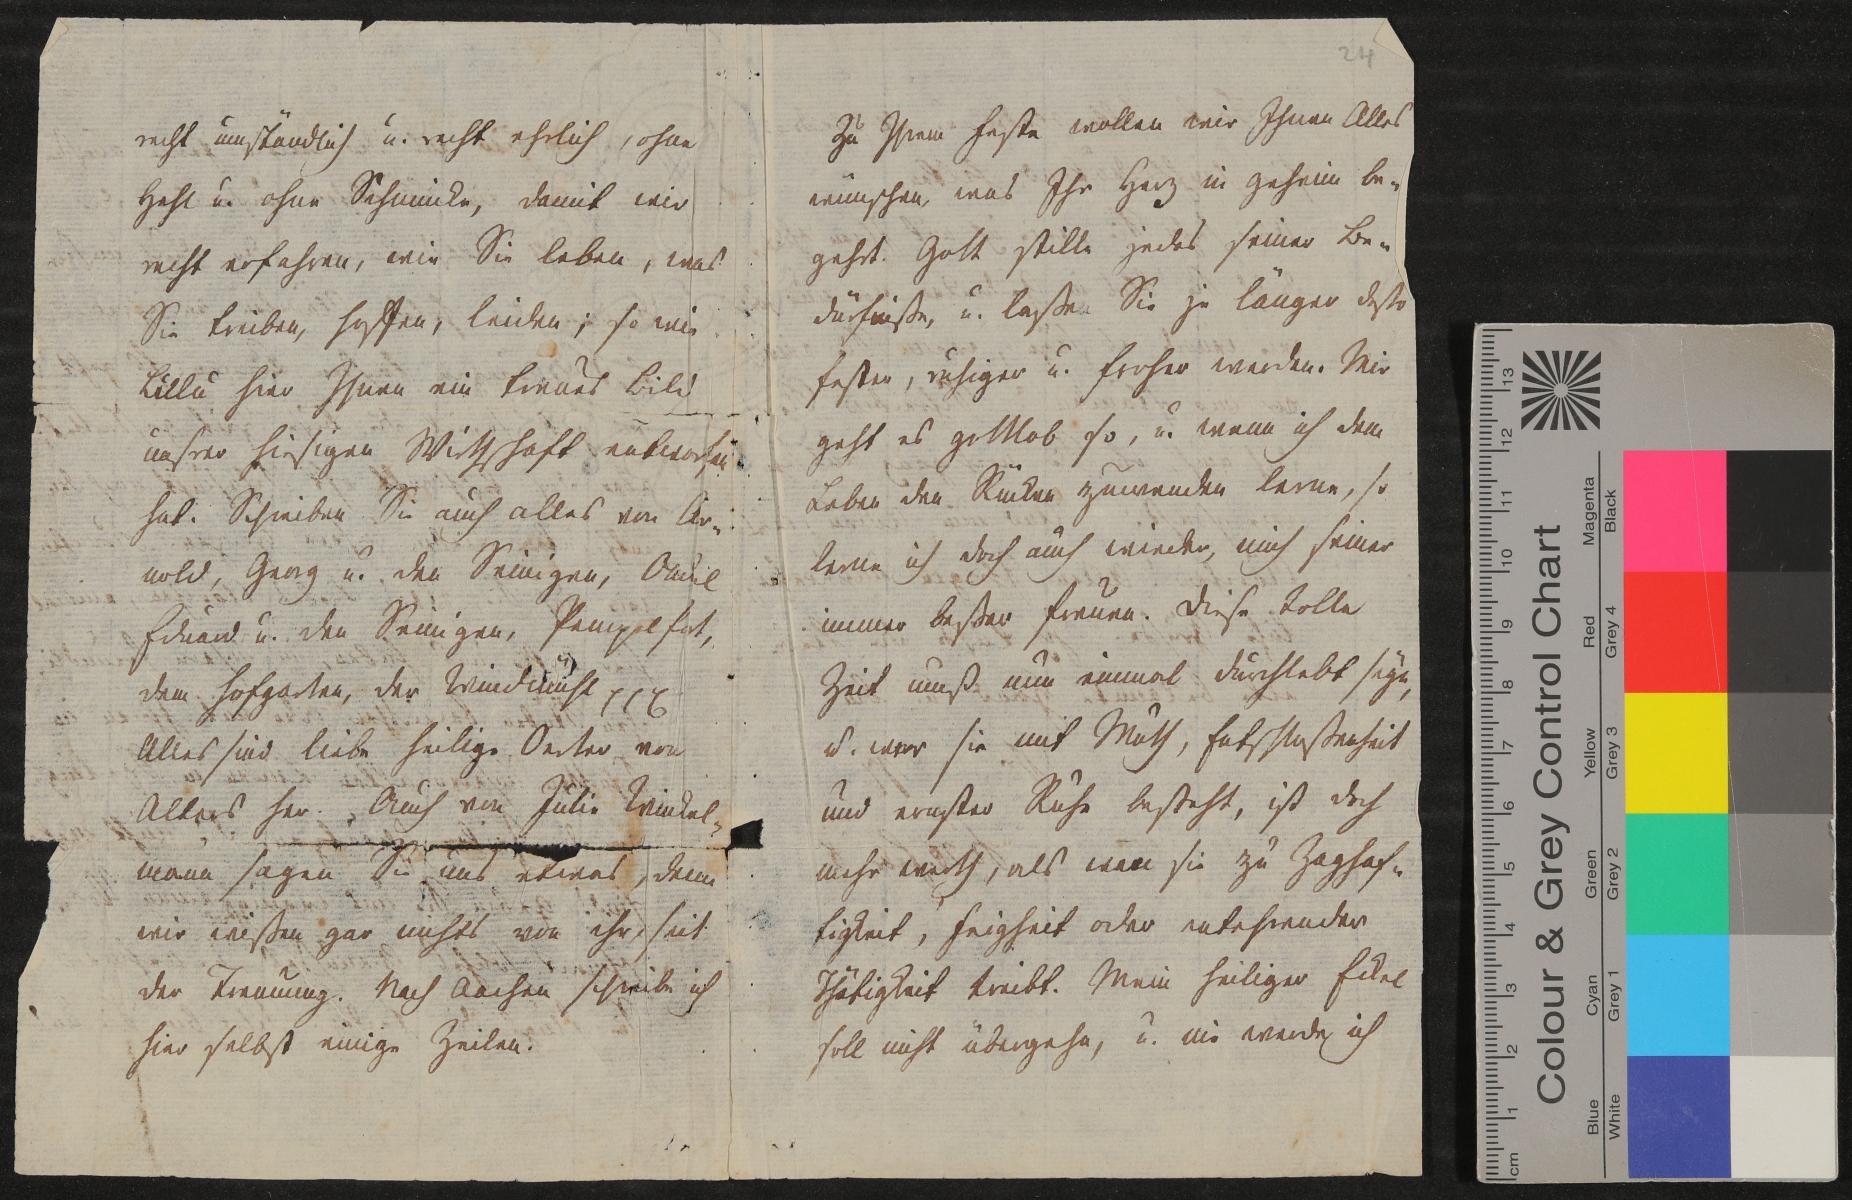 recht umständlich u. recht ehrlich, ohne
Hehl u. ohne Schminke, damit wir
recht erfahren, wie Sie leben, was
Sie treiben, hoffen, leiden; so wie
Lillu hier Ihnen ein treues Bild
unsrer hiesigen Wirthschaft entworfen
hat. Schreiben Sie auch alles von Ar-
nold, Georg u. den Seinigen, Onkel
Eduard u. den Seinigen, Pempelfort,
dem Hofgarten, der Windmühl
Alles sind liebe heilige Oerter von
Alters her. Auch von Julie Winkel-
mann sagen Sie uns etwas, denn
wir wißen gar nichts von ihr, seit
der Trennung. Nach Aachen schreibe ich
hier selbst einige Zeilen.
24
Zu Ihrem Feste wollen wir Ihnen Alles
wünschen, was Ihr Herz in geheim be-
gehrt. Gott stille jedes seiner Be-
dürfniße, u. laße Sie je länger desto
fester, ruhiger u. froher werden. Mir
geht es gottlob so, u. wenn ich dem
Leben den Rücken zuwenden lerne, so
lerne ich doch auch wieder, mich seiner
immer beßer freuen. Diese tolle
Zeit muß nun einmal durchlebt seyn,
u. wer sie mit Muth, Entschloßenheit
und ernster Ruhe besteht, ist doch
mehr werth, als wen sie zu Zaghaf-
tigkeit, Feigheit oder entehrender
Thätigkeit treibt. Mein heiliger Eckel
soll nicht übergehn, u. nie werde ich
Colour & Grey Control Chart
Blue Cyan Green Yellow Red Magenta
White Grey 1 Grey 2 Grey 3 Grey 4 Black
cm 1 2 3 4 5 6 7 8 9 10 11 12 13